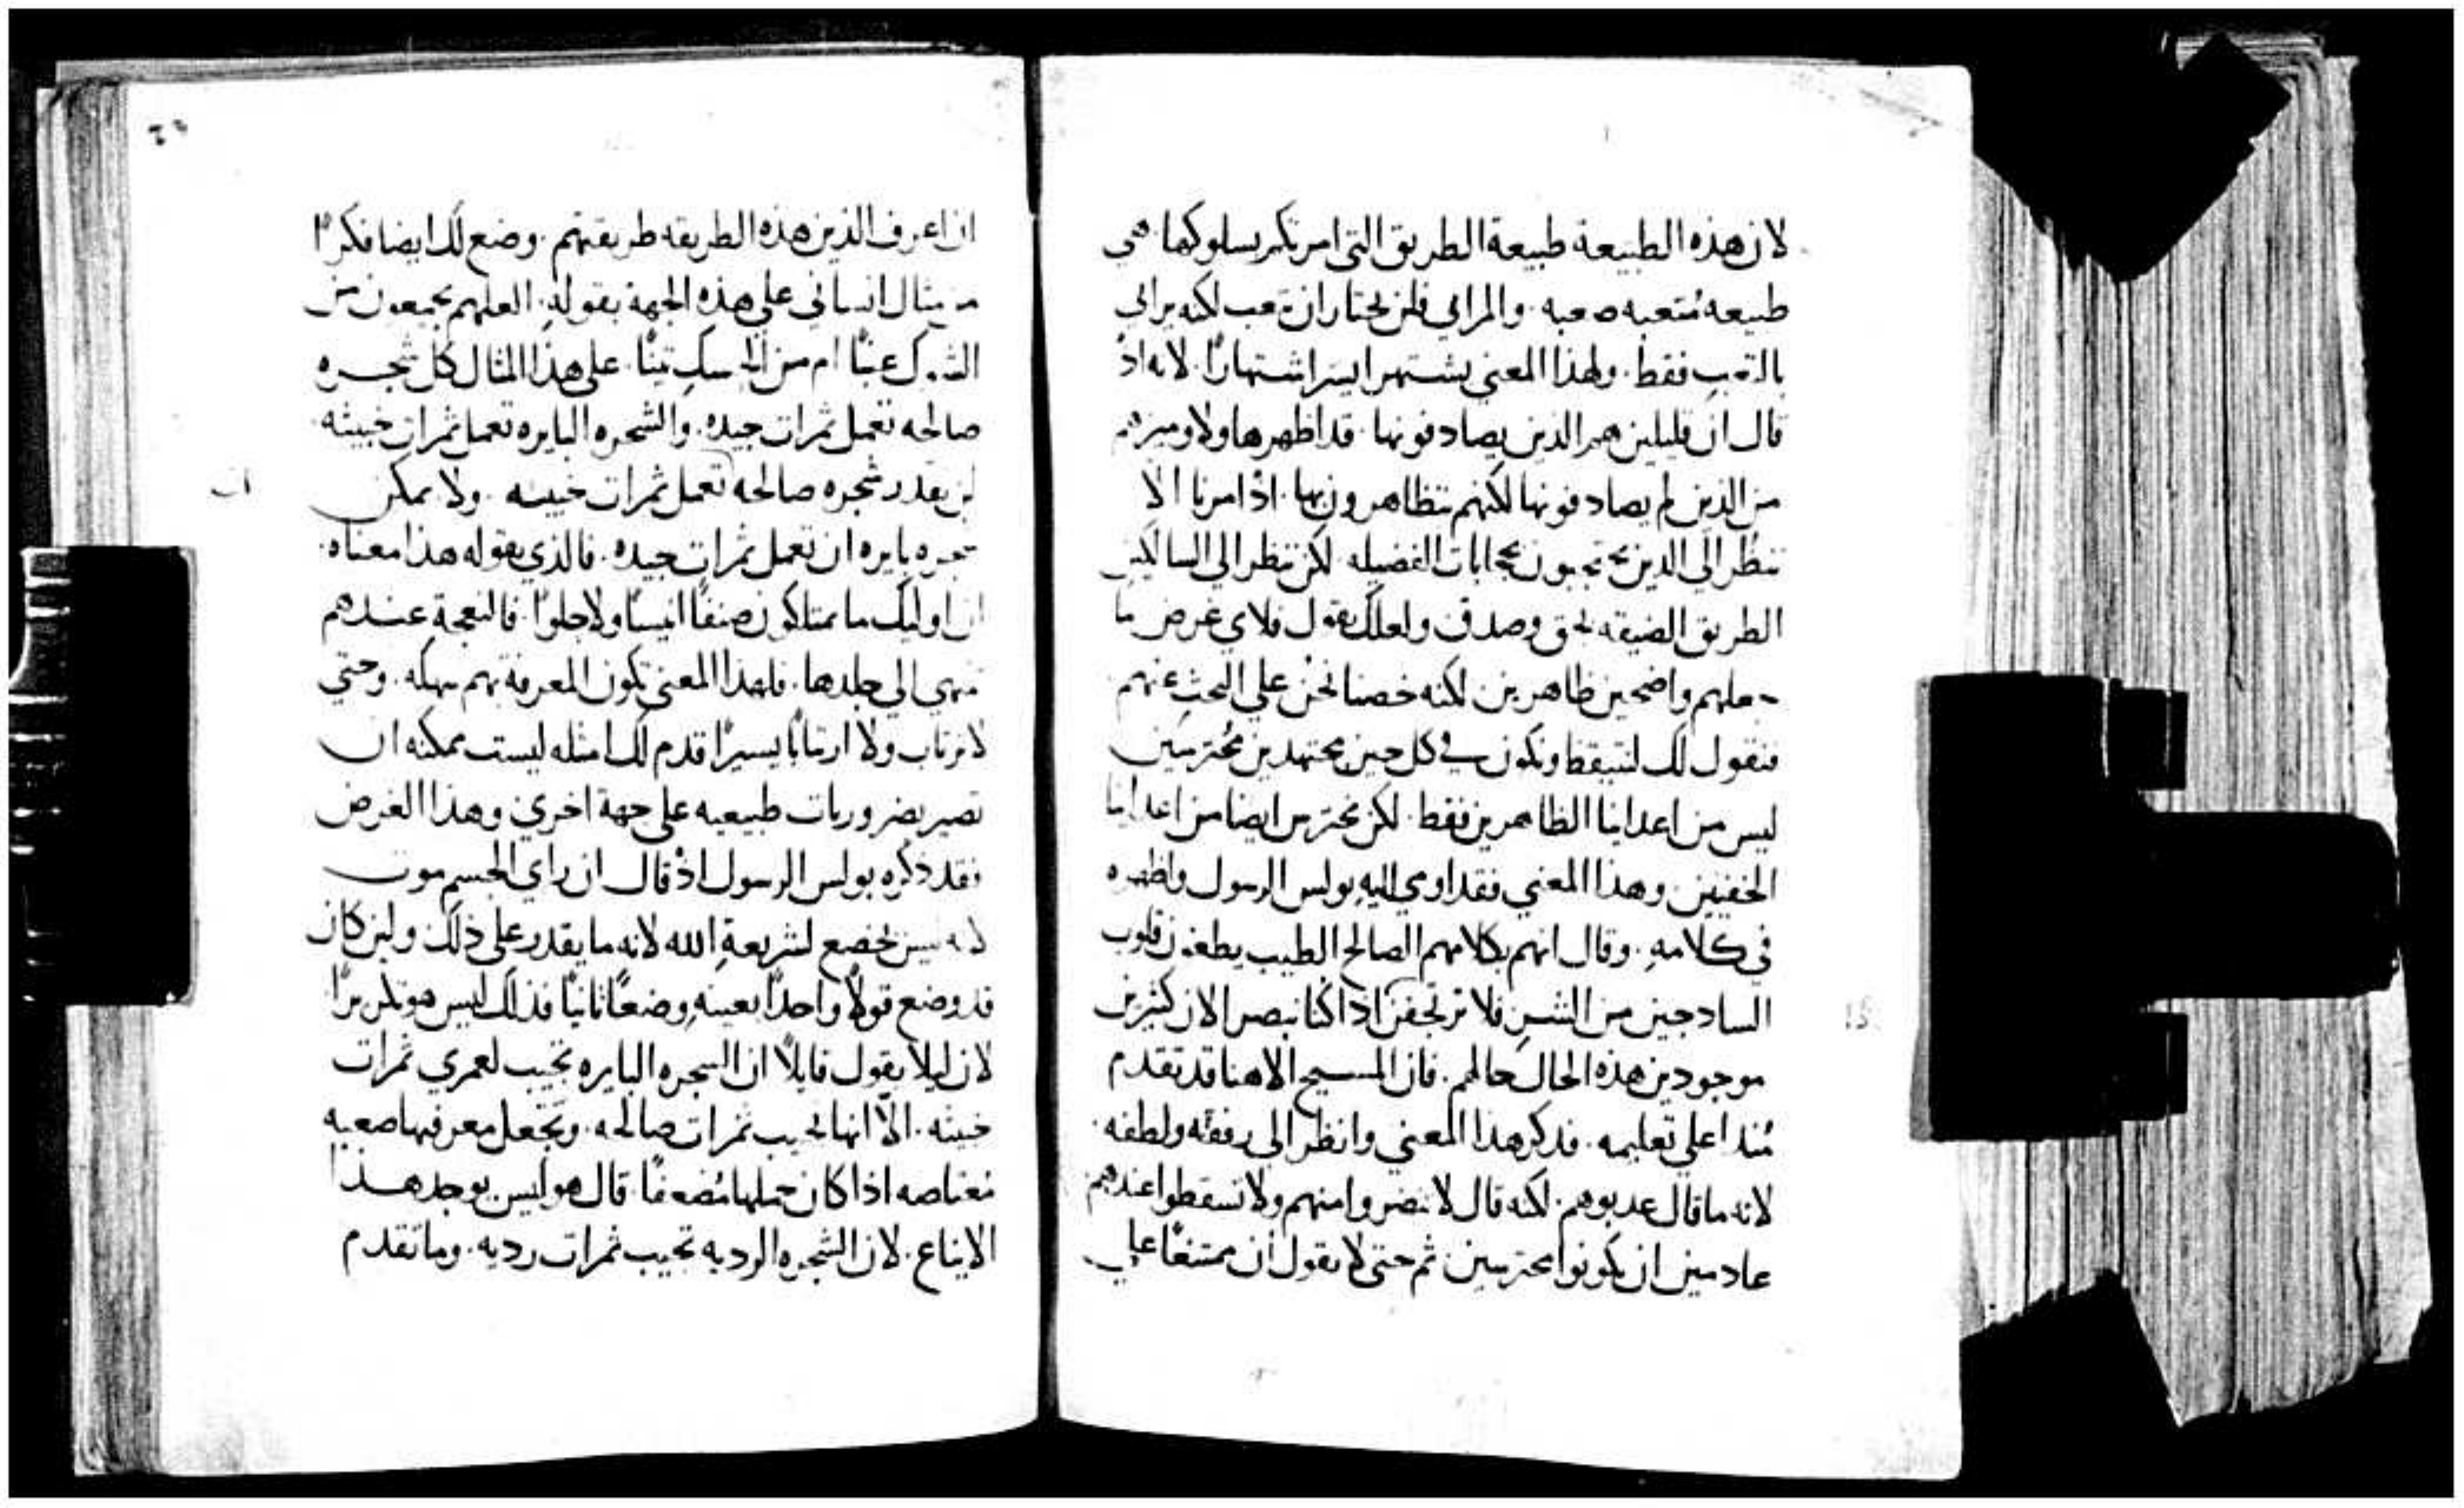 لان هذه الطبيعة طبيعة الطريق التي امرتكم بسلوكها. هي
طبيعه مُتعبه صعبه. والمرايي فلن يختار ان يتعب لكنه يرايي
بالتعب فقط. ولهذا المعني يشتهر ايسر اشتهارًا. لانه اذ
قال ان قليلين هم الذين يصادفونها. قد اظهرها ولا وميزهم
من الذين لم يصادفونها لكنهم يتظاهرون بها. اذ امرنا الا
ننظر الي الذين يحتجبون بحجابات الفضيله. لكن ننظر الي السالكين
الطريق الضيقه بحق وصدق ولعلك تقول فلاي غرض ما
جعلهم واضحين ظاهرين. لكنه خصنا نحن علي البحث عنهم
فنقول لك لنتيقظ ونكون في كل حين مجتهدين محُترسين
ليس من اعداينا الظاهرين فقط. لكن نحترس ايضا من اعداينا
الخفيين. وهذا المعني فقد اومي اليهِ بولس الرسول واظهره
في كلامهِ. وقال انهم بكلامهم الصالح الطيب يطغون قلوب
السادجين من الشر فلا ترتجفن اذا كنا نبصر الان كثيرين
موجودين هذه الحال حالهم. فان المسيح الاهنا قد تقدم
مُنذ اعلي تعليمه. فذكر هذا المعني وانظر الي رفقه ولطفه.
لانه ما قال عذبوهم. لكنه قال لا تضروا منهم ولا تسقطوا عندهم
عادمين ان تكونوا محترسين ثم حتي لا تقول ان ممتنعًا علي
ان اعرف الذين هذه الطريقه طريقتهم. وضع لك ايضا فكرًا
من مثال انساني علي هذه الجهة بقولهِ. العلهم يجمعون من
الشوك عنبًا ام من الحسك تينًا. علي هذا المثال كل شجره
صالحه تعمل ثمرات جيده. والشجره البايره تعمل ثمرات خبيثه.
لن يقدر شجره صالحه تعمل ثمرات خبيثه. ولا يمكن
شجره بايره ان تعمل ثمرات جيده. فالذي يقوله هذا معناه.
ان اوليك ما يمتلكون صنفًا انيسًا ولا حلوًا. فالنعجة عندهم
تنتهي الي جلدها. فلهذا المعني تكون المعرفة بهم سهله. وحتي
لا ترتاب ولا ارتيابًا يسيرًا قدم لك امثله ليست ممكنه ان
تصير بضروريات طبيعيه علي جهة اخري. وهذا الغرض
فقد ذكره بولس الرسول اذ قال ان راي الجسم موت
لانه ليس يخضع لشريعةِ الله لانه ما يقدر علي ذلك ولين كان
قد وضع قولاً واحدًا بعينهِ وضعًا ثانيًا فذلك ليس هو تكريرًا
لان ليلا يقول قايلاً ان الشجره البايره تجيب لعمري ثمرات
خبيثه. الاّ انها تجيب ثمرات صالحه. وتجعل معرفتها صعبه
مُعتاصه اذا كان حملها مُضعفًا. قال هو ليس يوجد هذا
الايناع. لان الشجره الرديه تجيب ثمرات رديه. وما تقدم